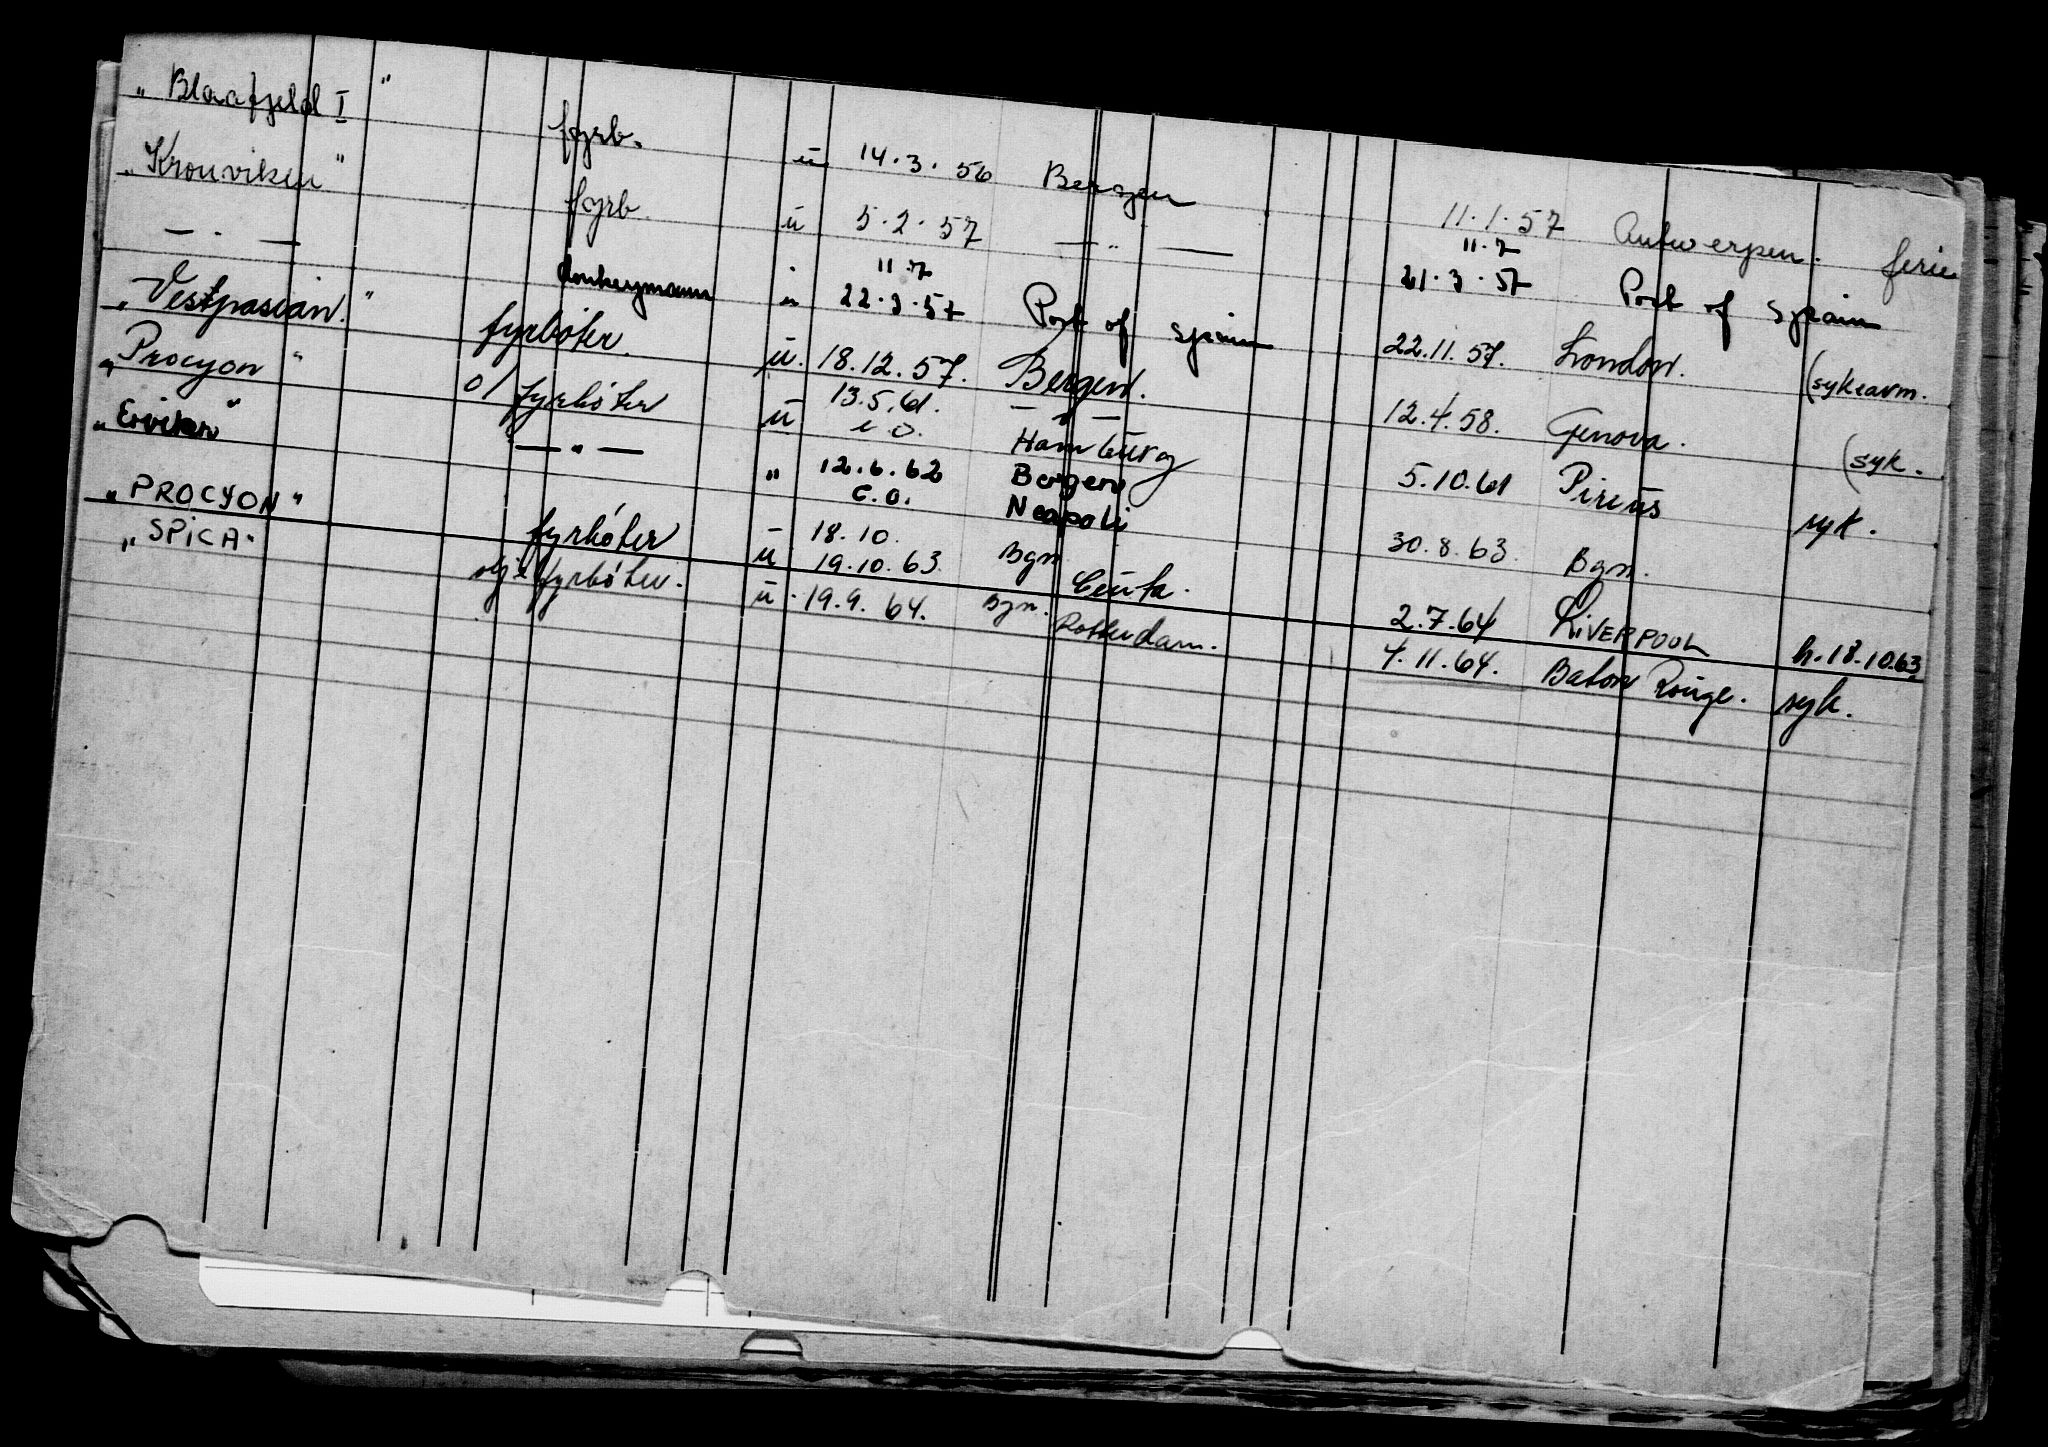 „ Blaafjeld I " fyrb. u 14.3.56 Bergen 11.1.57 Antwerpen. ferie
„ Kronviken " fyrb u 5.2.57 — " — 11.7 21.3.57 Port of Spain
— . — donkeymann " 11.7 22.3.57 Port of Spain 22.11.57. London. (sykeavm.
„ Vestpasian. " fyrbøter. u. 18.12.57. Bergen. 12.4.58. Genova. (syk.
„ Procyon " o/ fyrbøter u 13.5.61. — " — Hamburg 5.10.61 Pireus syk.
„ Erviken " — " — " 12.6.62 Bergen 30.8.63. Bgn.
C.O. Neapoli
„ PROCYON " fyrbøter u 18.10. 19.10.63. Bgn Ceuta. 2.7.64 LIVERPOOL h.18.10.63
„ SPICA " olje fyrbøter. u. 19.9.64. Bgn. Rotterdam. 4.11.64. Baton Rouge. syk.